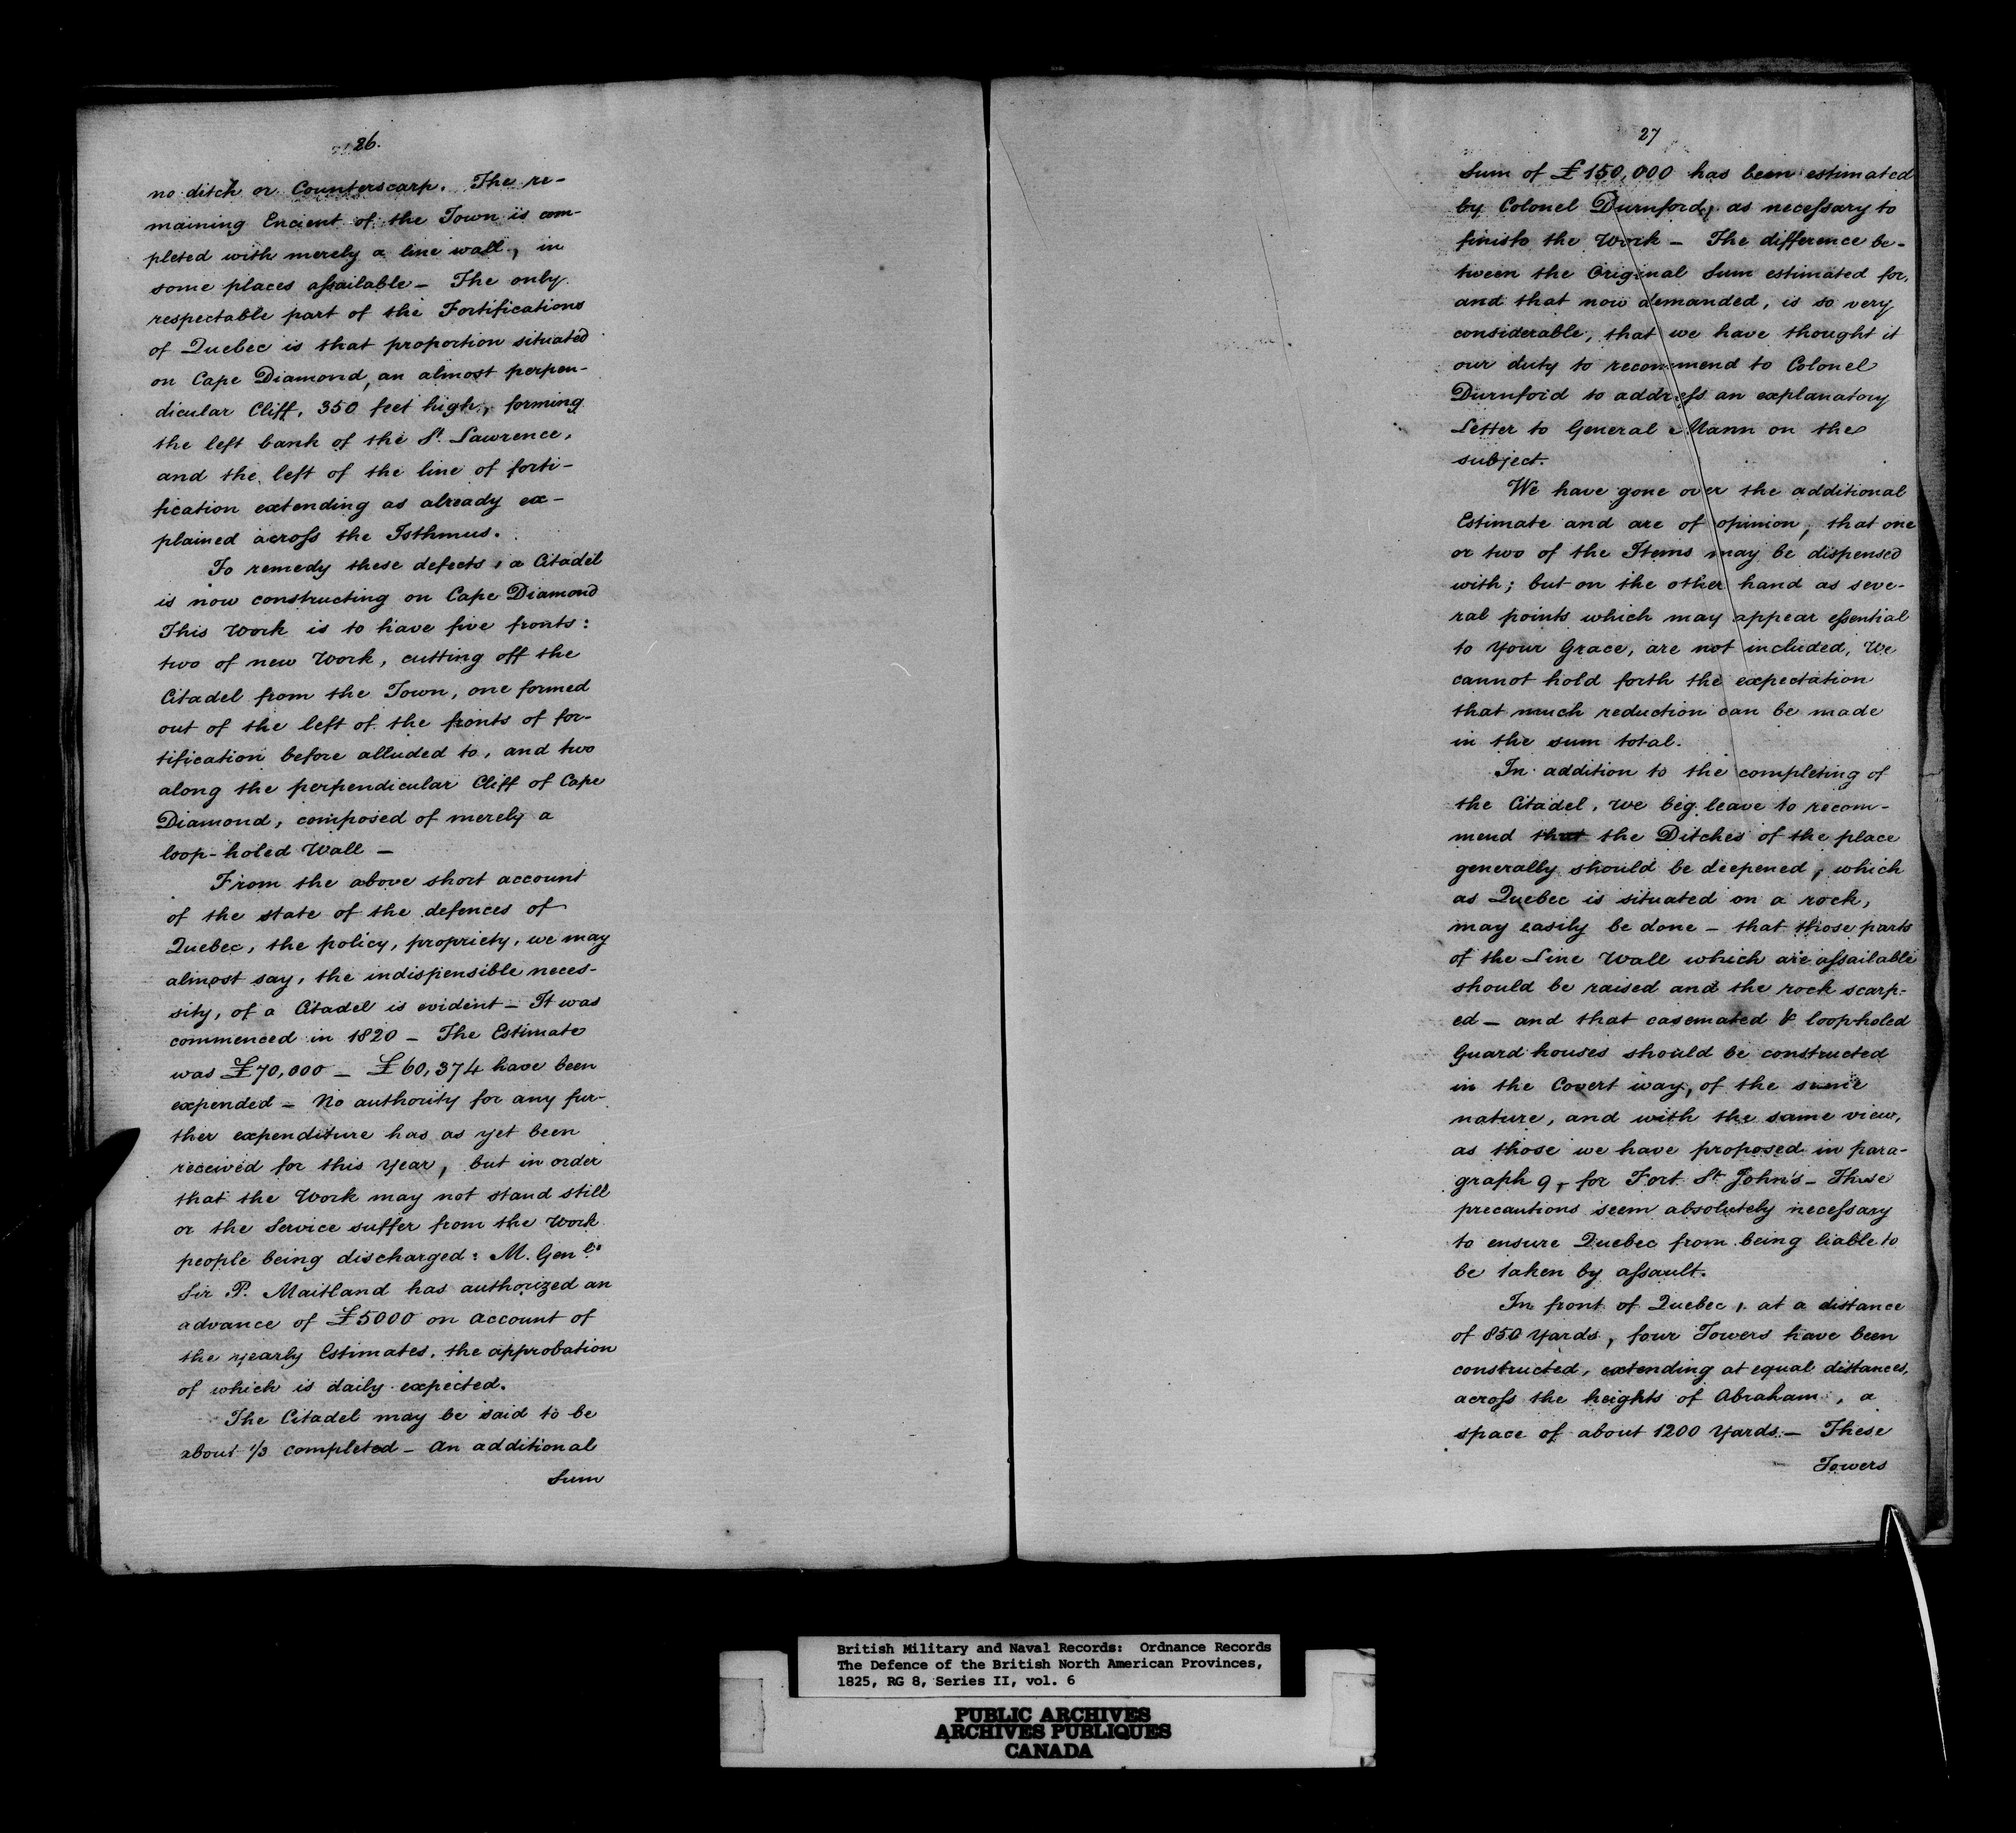 26.
no ditch or Counterscarp. The re-
maining Encient of the Town is com-
pleted with merely a line wall, in
some places assailable - The only
respectable part of the Fortifications
of Quebec is that proportion situated
on Cape Diamond, an almost perpen-
dicular Cliff, 350 feet high, forming
the left bank of the St. Lawrence,
and the left of the line of forti-
fication extending as already ex-
plained across the Isthmus.
To remedy these defects, a Citadel
is now constructing on Cape Diamond
This Work is to have five fronts:
two of new Work, cutting off the
Citadel from the Town, one formed
out of the left of the fronts of for-
tification before alluded to, and two
along the perpendicular Cliff of Cape
Diamond, composed of merely a
loop-holed Wall -
From the above short account
of the state of the defences of
Quebec, the policy, propriety, we may
almost say, the indispensible neces-
sity, of a Citadel is evident - It was
commenced in 1820 - The Estimate
was £70,000 - £60,374 have been
expended - No authority for any fur-
ther expenditure has as yet been
received for this Year, but in order
that the Work may not stand still
or the Service suffer from the Work
people being discharged: M. Genl.
Sir P. Maitland has authorized an
advance of £5000 on account of
the yearly Estimates, the approbation
of which is daily expected.
The Citadel may be said to be
about 1/3 completed - An additional
Sum
27
Sum of £150,000 has been estimated
by Colonel Durnford, as necessary to
finish the Work - The difference be-
tween the Original Sum estimated for,
and that now demanded, is so very
considerable, that we have thought it
our duty to recommend to Colonel
Durnford to address an explanatory
Letter to General Mann on the
subject.
We have gone over the additional
Estimate and are of opinion, that one
or two of the Items may be dispensed
with; but on the other hand as seve-
ral points which may appear essential
to Your Grace, are not included, We
cannot hold forth the expectation
that much reduction can be made
in the sum total.
In addition to the completing of
the Citadel, we beg leave to recom-
mend that the Ditches of the place
generally should be deepened, which
as Quebec is situated on a rock,
may easily be done - that those parts
of the Line Wall which are assailable
should be raised and the rock scarp-
ed - and that casemated & loopholed
Guard houses should be constructed
in the Covert way, of the same
nature, and with the same view,
as those we have proposed in para-
graph 9, for Fort St. John's - These
precautions seem absolutely necessary
to ensure Quebec from being liable to
be taken by assault.
In front of Quebec, at a distance
of 850 Yards, four Towers have been
constructed, extending at equal distances,
across the heights of Abraham, a
space of about 1200 Yards - These
Towers
British Military and Naval Records: Ordnance Records
The Defence of the British North American Provinces,
1825, RG 8, Series II, vol. 6
PUBLIC ARCHIVES
ARCHIVES PUBLIQUES
CANADA